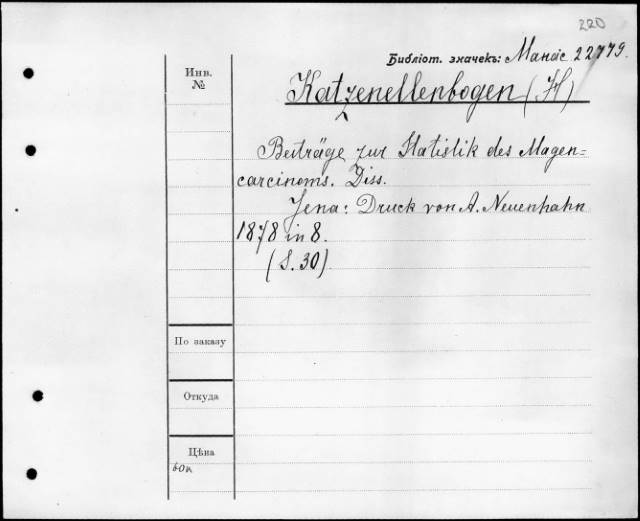 220
Библіот. значекъ: Манаѳ 22779.
Инв.
№
Katzenellenbogen (H)
Beiträge zur Statistik des Magen=
carcinoms. Diss.
Jena: Druck von A. Neuenhahn
1878 in 8.
(S. 30)
По заказу
Откуда
Цѣна
60к